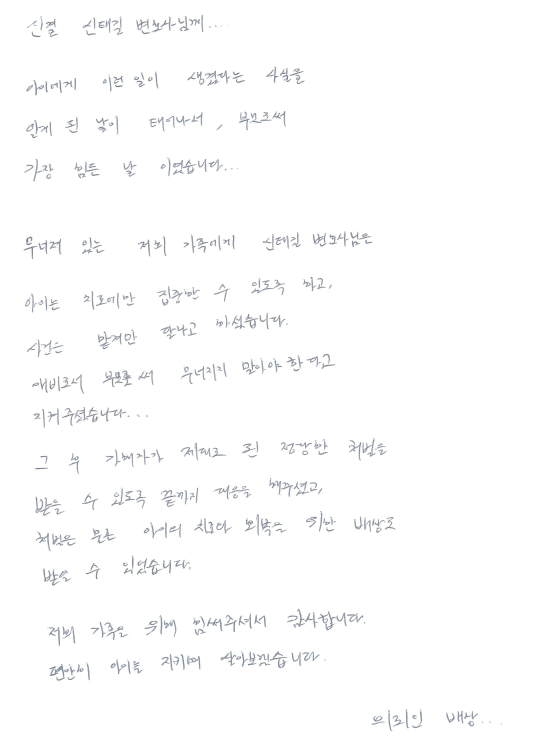 신결 신태길 변호사님께....
아이에게 이런 일이 생겼다는 사실을
알게 된 날이 태어나서, 부모로써
가장 힘든 날 이였습니다...
무너져 있는 저희 가족에게 신태길 변호사님은
아이는 치료에만 집중할 수 있도록 하고,
사건은 맡겨만 달라고 하셨습니다.
애비로서 부모로써 무너지지 말아야 한다고
지켜주셨습니다...
그 후 가해자가 제대로 된 건강한 처벌을
받을 수 있도록 끝까지 대응을 해주셨고,
처벌은 물론 아이의 치료와 회복을 위한 배상도
받을 수 있었습니다.
저희 가족을 위해 힘써주셔서 감사합니다.
편안히 아이를 지키며 살아보겠습니다.
의뢰인 배상...